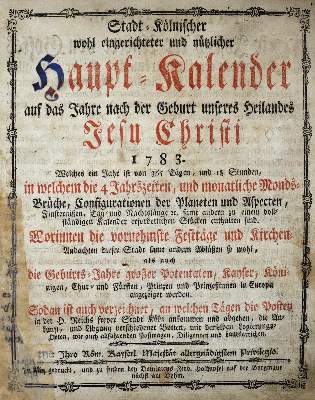 Stadt-Kölnischer
wohl eingerichteter und nützlicher
Haupt-Kalender
auf das Jahre nach der Geburt unseres Heilandes
Jesu Christi
1783.
Welches ein Jahr ist von 365 Tägen, und Stunden,
in welchem die 4 Jahrszeiten, und monatliche Monds-
Brüche, Configurationen der Planeten und Aspecten,
Finsternissen, Tag- und Nachtslänge ꝛc. samt andern zu einem voll-
ständigen Kalender erforderlichen Stücken enthalten sind.
Worinnen die vornehmste Festtäge und Kirchen-
Andachten dieser Stadt samt andern Abläßen so wohl,
als auch
die Geburts-Jahre großer Potentaten, Kayser, Köni-
nigen, Chur- und Fürsten, Prinzen und Prinzeßinnen in Europa
angezeiget werden.
Sodan ist auch verzeichnet, an welchen Tägen die Posten
in der H. Reichs freyer Stadt Köln ankommen und abgehen, die An-
kunft, und Abgang verschiedener Botten, mit derselben Logierungs-
Heren, wie auch abfahrenden Postwagen, Diligencen und
Mit Ihro Röm. Kayserl. Majestät allergnädigstem Privilegio.
Köln, gedruckt, und zu finden bey Ferd. auf der Burgmaur
nächst